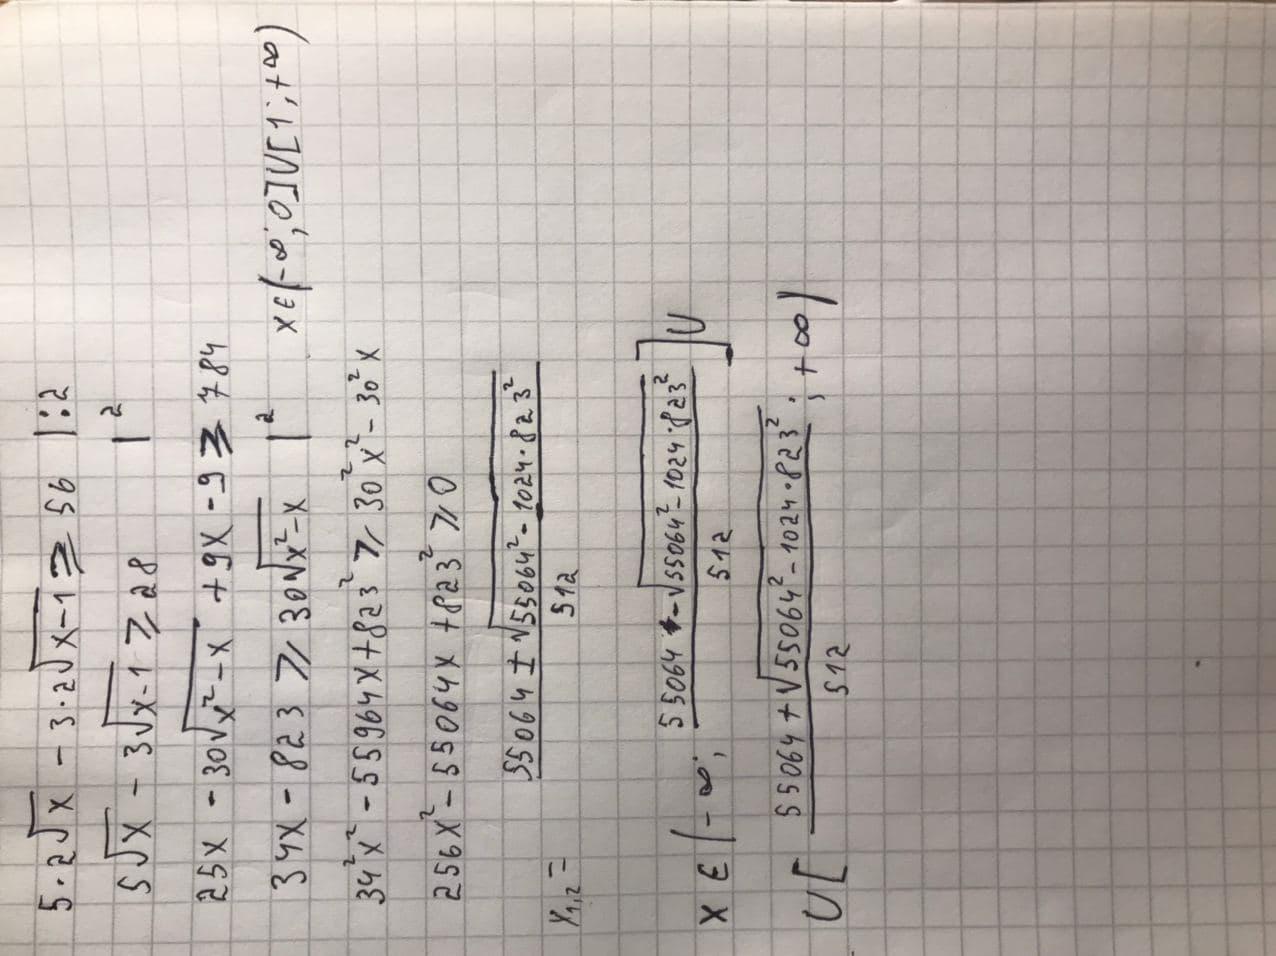 5·2√x - 3·2√x-1 ⩾ 56 |:2
5√x - 3√x-1 ⩾ 28 |²
25x - 30√x²-x + 9x - 9 ⩾ 784
34x - 823 ⩾ 30√x²-x |² x∈(-∞;0]∪[1;+∞)
34²x² - 55964x + 823² ⩾ 30²x² - 30²x
256x² - 55064x + 823² ⩾ 0
x₁,₂ = (55064 ± √55064² - 1024·823²)/512
x ∈ (-∞; (55064 - √55064² - 1024·823²)/512] ∪
∪ [(55064 + √55064² - 1024·823²)/512; +∞)